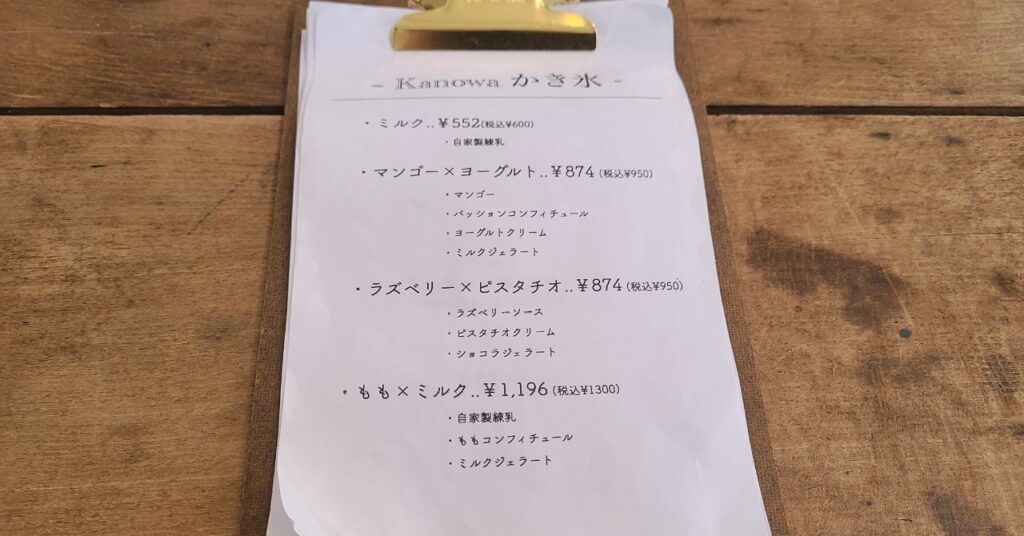 - Kanowa かき氷 -
・ミルク..¥552(税込¥600)
・自家製練乳
・マンゴー×ヨーグルト..¥874(税込¥950)
・マンゴー
・パッションコンフィチュール
・ヨーグルトクリーム
・ミルクジェラート
・ラズベリー×ピスタチオ..¥874(税込¥950)
・ラズベリーソース
・ピスタチオクリーム
・ショコラジェラート
・もも×ミルク..¥1,196(税込¥1300)
・自家製練乳
・ももコンフィチュール
・ミルクジェラート